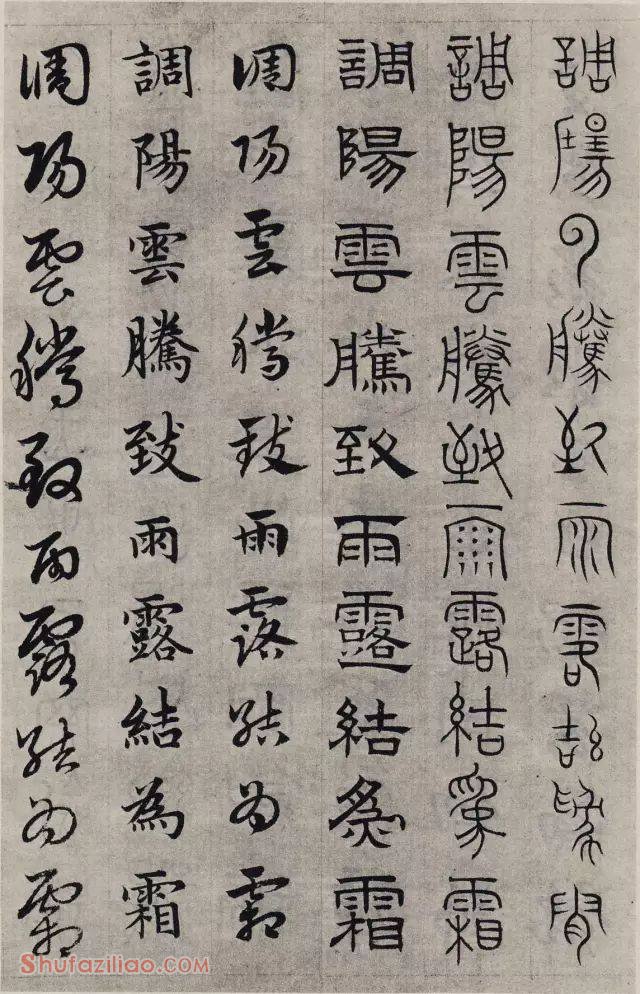 調陽雲騰致雨露結為霜
調陽雲騰致雨露結為霜
調陽雲騰致雨露結為霜
調陽雲騰致雨露結為霜
調陽雲騰致雨露結為霜
調陽雲騰致雨露結為霜
Shufaziliao.COM